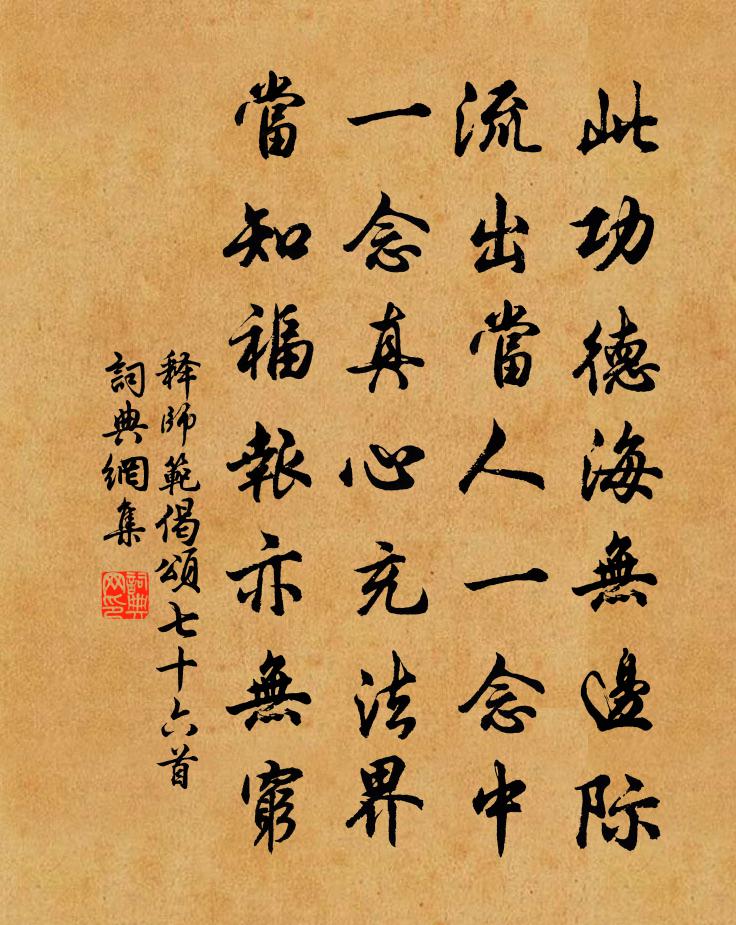 此功德海無邊际
流出當人一念中
一念真心充法界
當知福報亦無窮
释師範偈頌七十六首
詞典網集
詞典网印